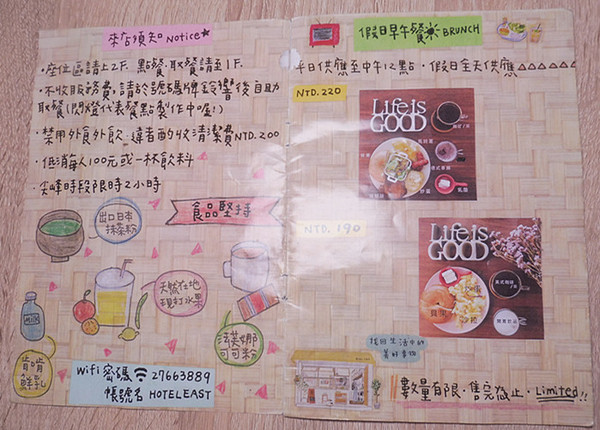 來店須知 Notice★
・座位區請上2F. 點餐.取餐請至1F.
・不收服務費,請於號碼牌鈴響後自助
取餐(閃燈代表餐點製作中喔!)
・禁用外食外飲.違者酌收清潔費NTD.200
・低消每人100元或一杯飲料
・尖峰時段限時2小時
食品堅持
出口日本
抹茶粉
天然在地
現打水果
MILK
法芙娜
可可粉
鮮乳
Wifi 密碼 27663889
帳號名 HOTELEAST
假日早午餐 BRUNCH
平日供應至中午12點.假日全天供應
NTD.220
Life is
GOOD
NTD.190
Life is
GOOD
找回生活中的
美好事物
數量有限.售完為止.Limited!!